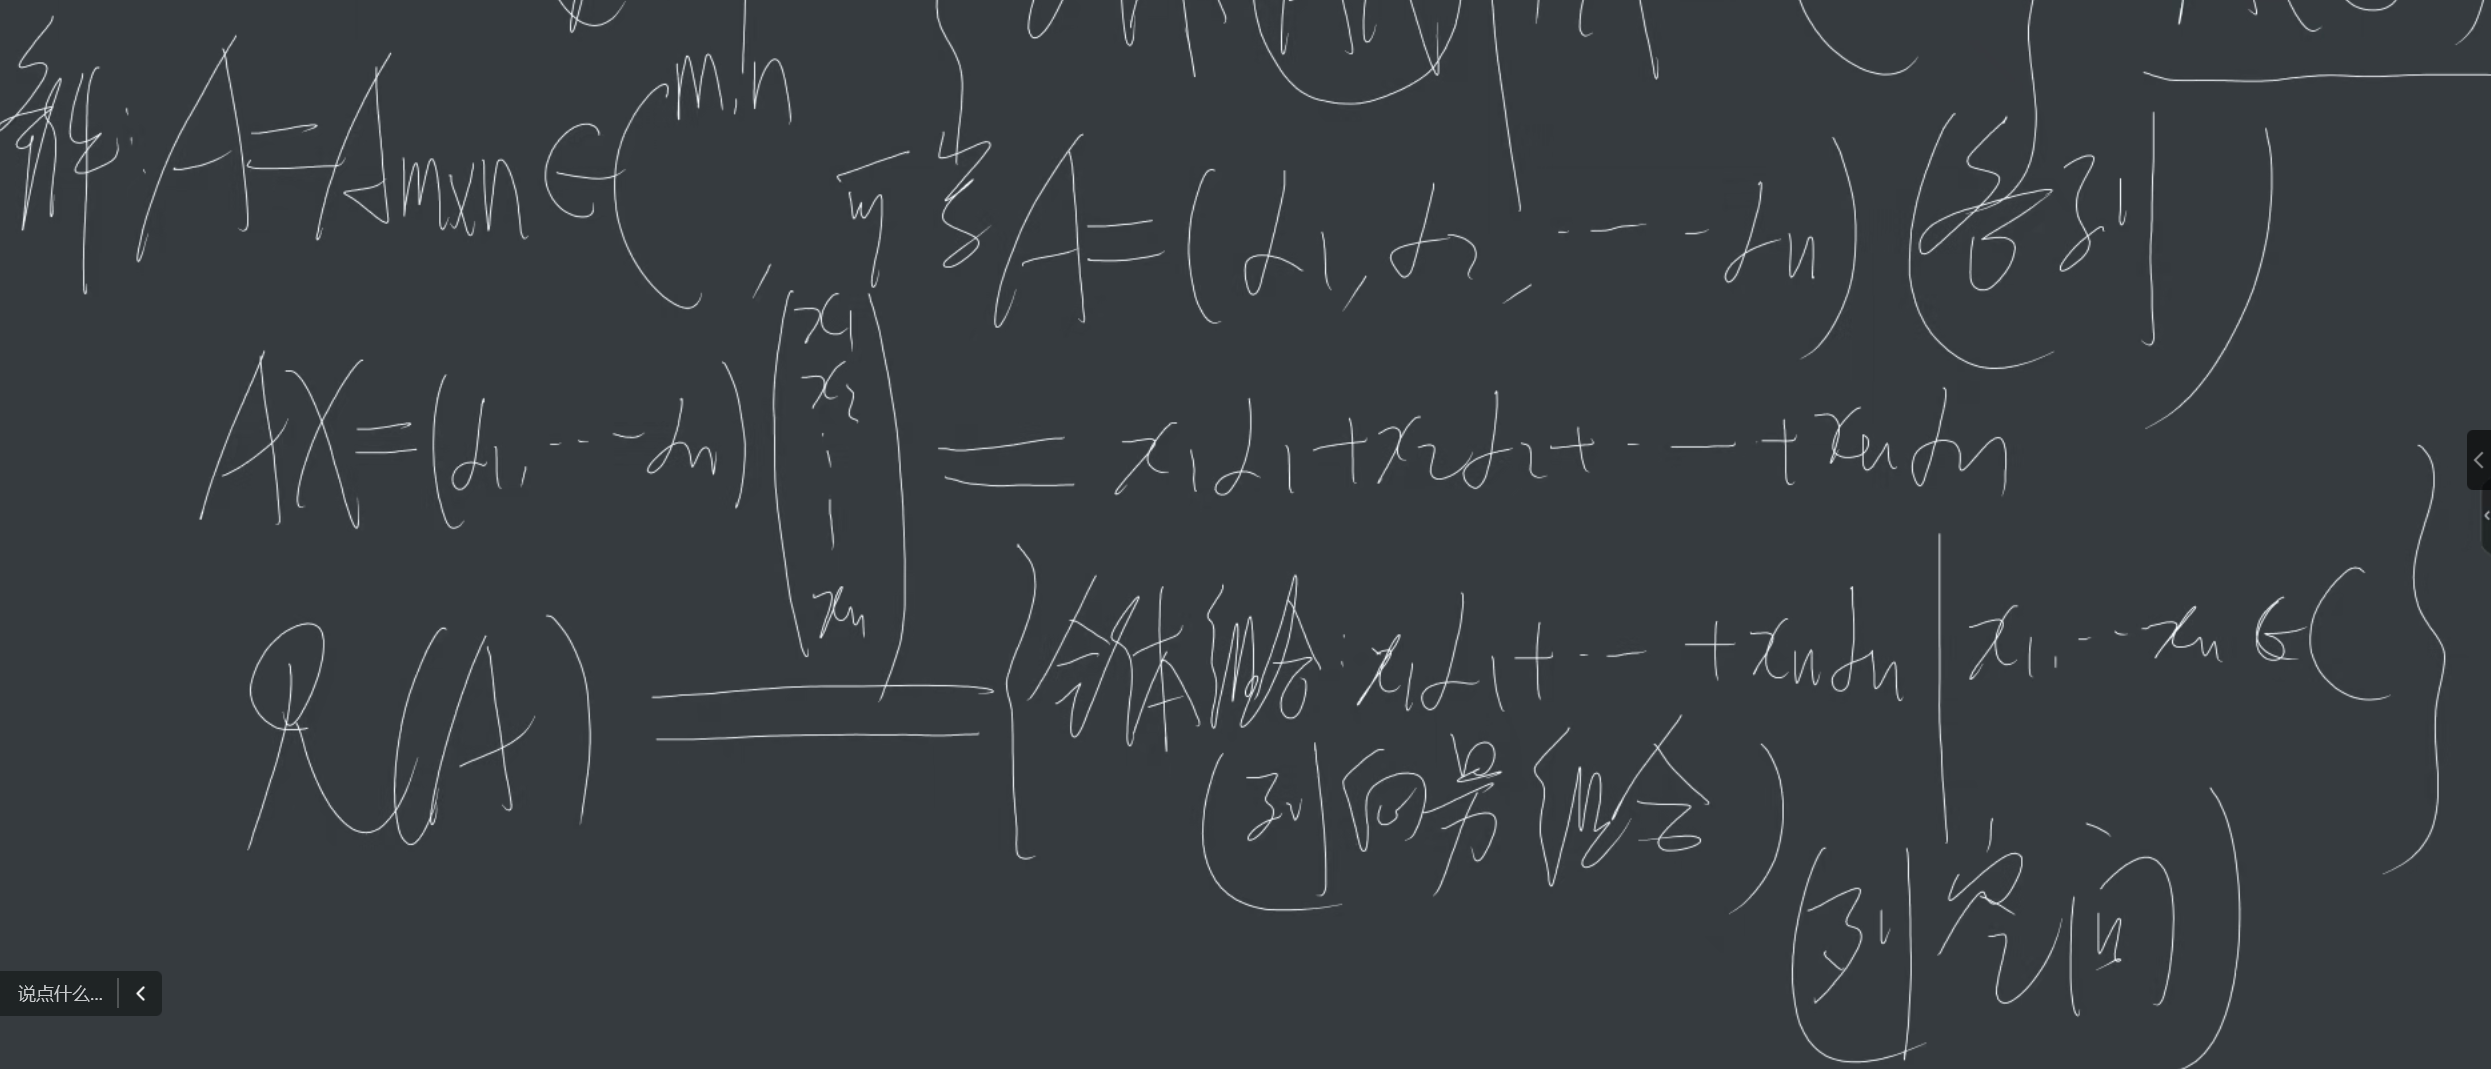 解: A = A m×n ∈ C^{m,n}, 可写 A = (α1, α2, ---- αn) (各列)
AX = (α1, --- αn) (x1 x2 ⋮ xn) = x1α1 + x2α2 + --- + xnαn
R(A) = {全体组合: x1α1 + --- + xnαn | x1, --- xn ∈ C}
(列向量组合)
(列空间)
说点什么...